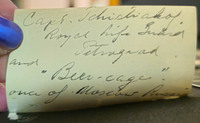 Capt. Tchitchakof
Royal Life Guard
Petrograd
and
"Bear-cage".
one of Moscow